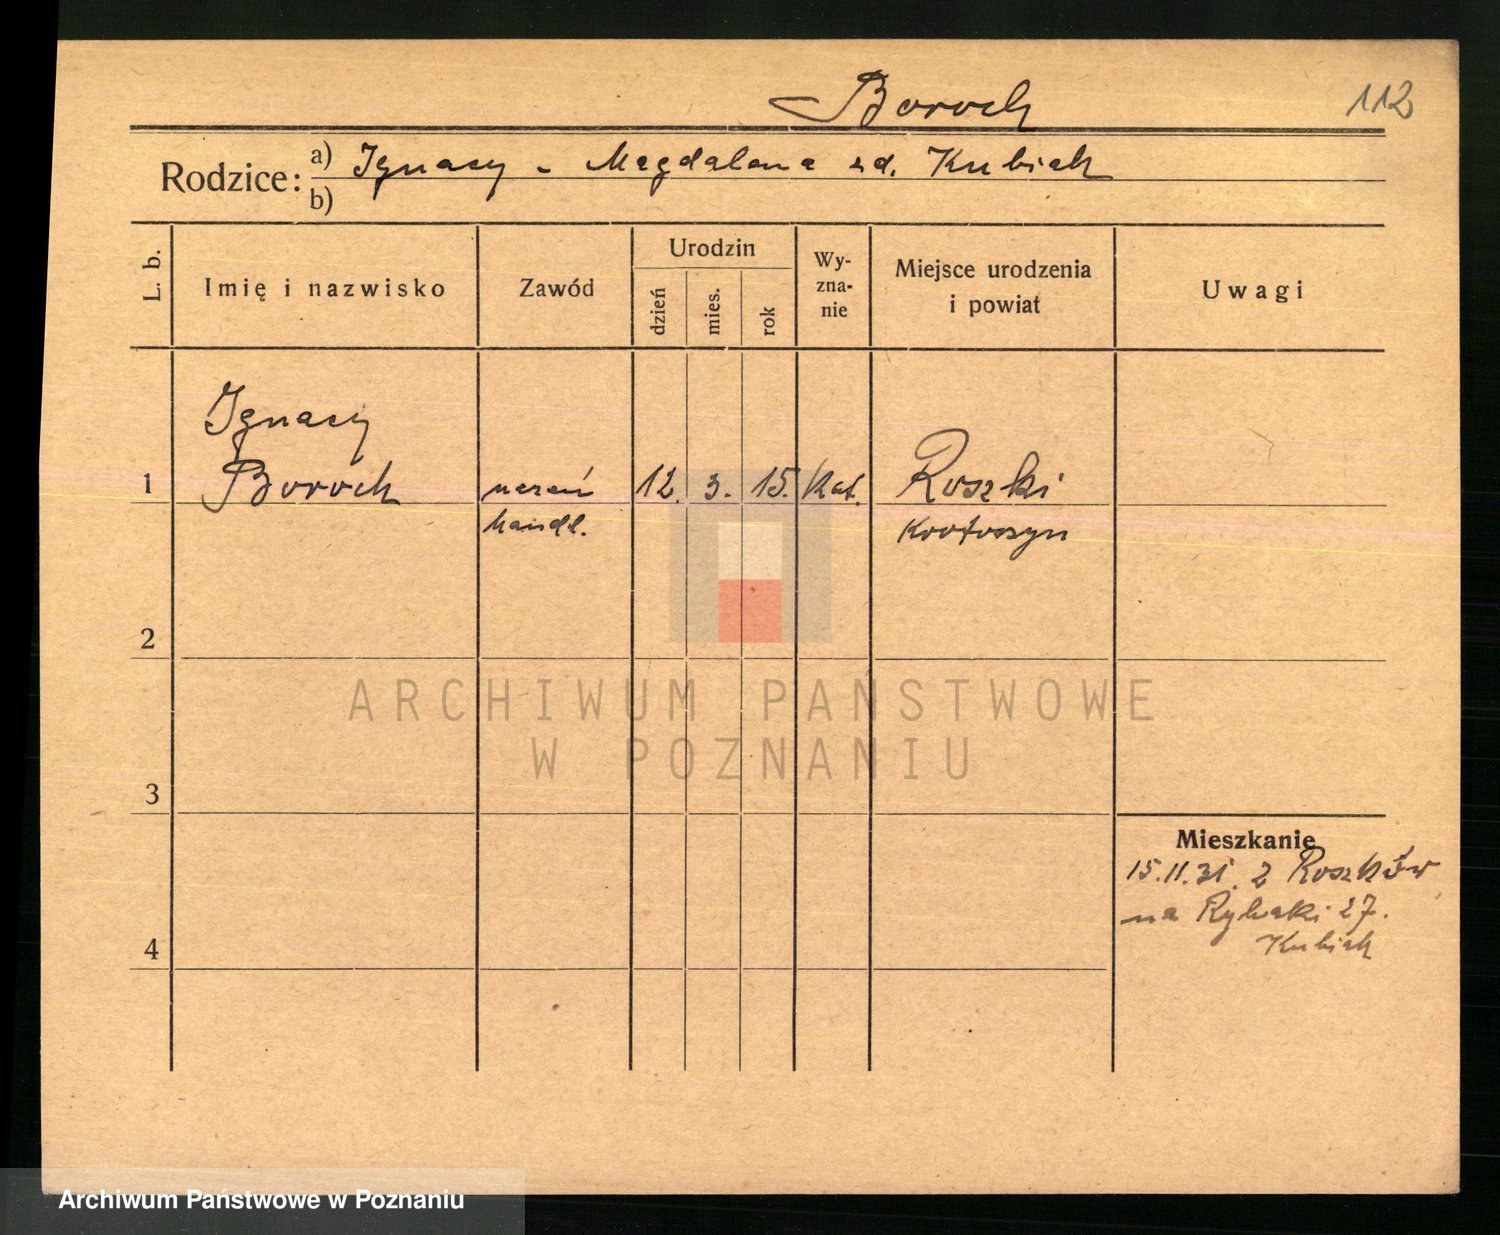 Boroch
112
Rodzice: a) Ignacy - Magdalena zd. Kubiak
b)
L. b.
Imię i nazwisko
Zawód
Urodzin
dzień
mies.
rok
Wy-
zna-
nie
Miejsce urodzenia
i powiat
Uwagi
Ignacy
1 Boroch uczeń 12. 3. 15. Kat. Roszki
handl. Krotoszyn
2
3
4
Mieszkanie
15.11.31. z Roszków
na Rybaki 27.
Kubiak
ARCHIWUM PAŃSTWOWE
W POZNANIU
Archiwum Państwowe w Poznaniu